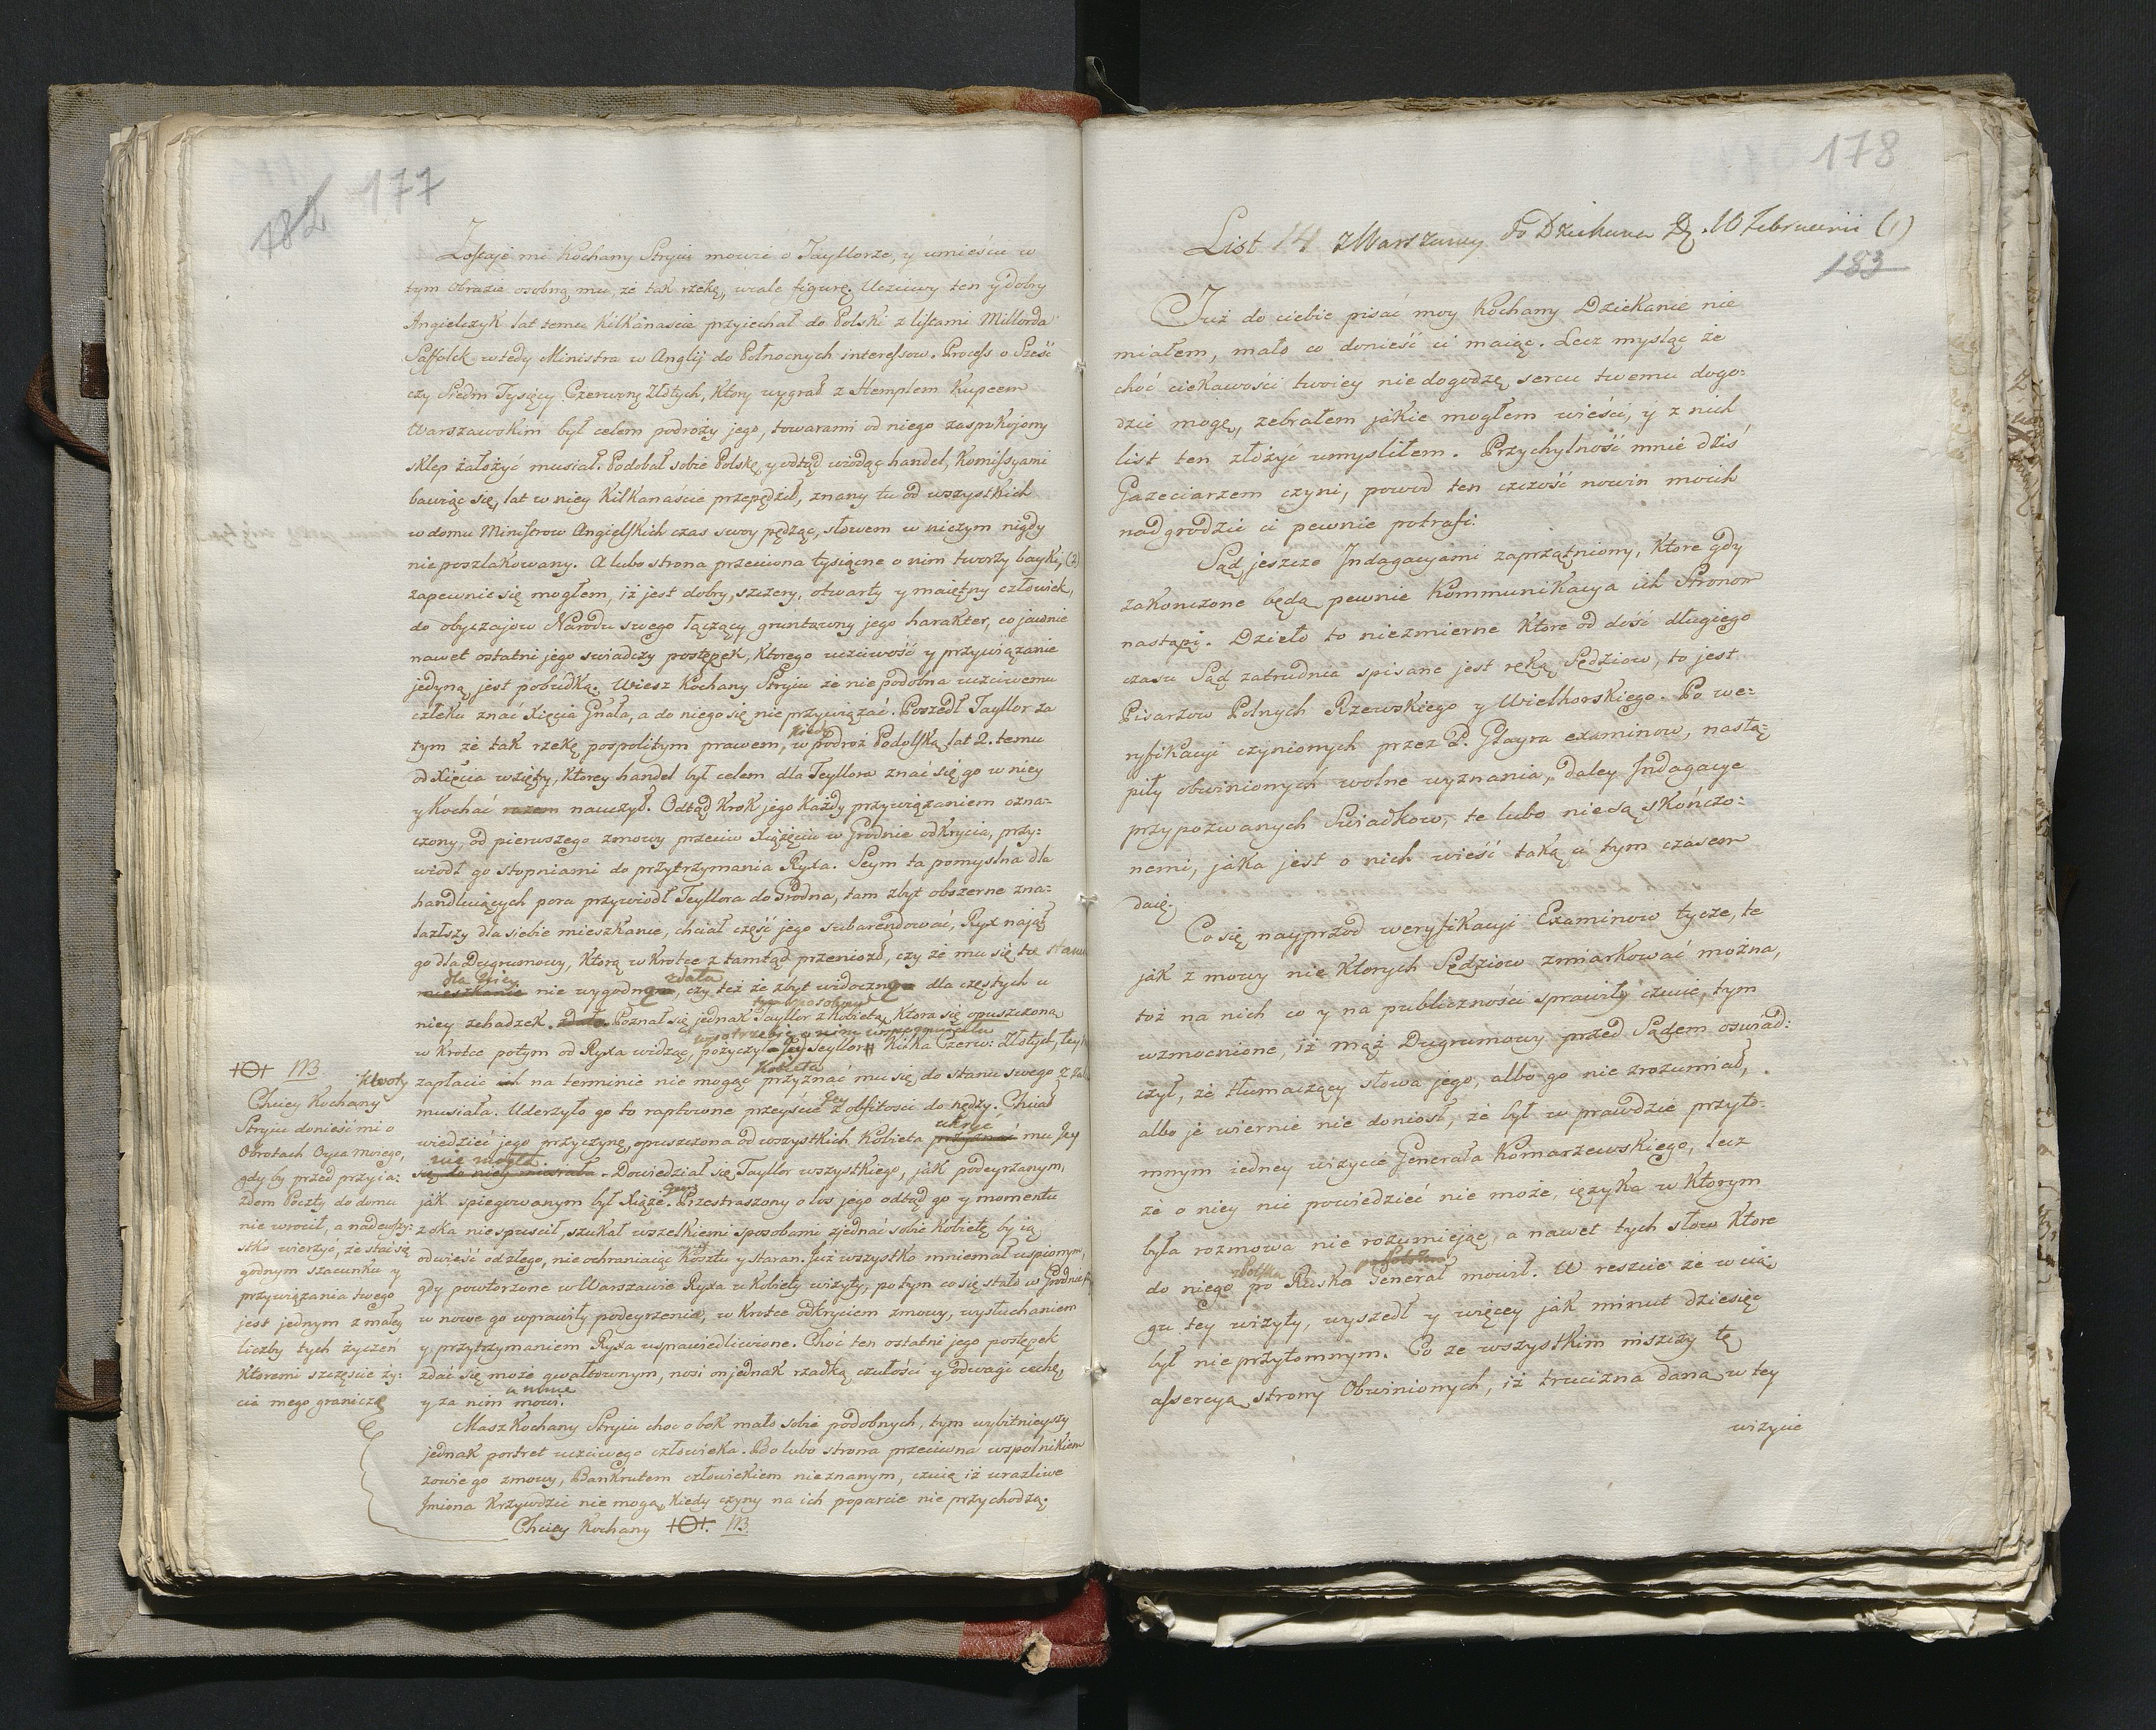 182 177
Zostaje mi Kochany Stryiu mowić o Tayllorze, y umieściu w
tym obrazie osobną mu, że tak rzekę, wcale figurę. Uczciwy ten y dobry
Angielczyk lat temu Kilkanaście przyiechał do Polski z listami Millorda
Saffolck wtedy Ministra w Anglij do Północnych interessow. Process o Sześć
czy Siedm Tysięcy Czerwony Złotych, Ktory wygrał z Hemplem Kupcem
Warszawskim był celem podroży jego, towarami od niego zaspokojony
sklep założyć musiał. Podobał sobie Polskę, y odtąd wiodąc handel, Komissyami
bawiąc się, lat w niey Kilkanaście przepędził, znany tu od wszystkich
w domu Ministrow Angielskich czas swoy pędząc, słowem w niczym nigdy
nie poszlakowany. A lubo strona przeciwna tysiączne o nim tworzy bayki, (2)
zapewnic się mogłem, iż jest dobry, szczery, otwarty y maiętny człowiek,
do obyczajow Narodu swego łączący gruntowny jego harakter, co jawnie
nawet ostatni jego swiadczy postępek, Ktorego uczciwość y przywiązanie
jedyną jest pobudką. Wiesz Kochany Stryiu że nie podobna uczciwemu
człeku znać Xięcia Gnała, a do niego się nie przywiązać. Poszedł Tayllor za
tym że tak rzekę pospolitym prawem, w podroż Podolską lat 2. temu
od Xięcia wzięty, Ktorey handel był celem dla Teyllora znać się go w niey
y Kochać razem nauczył. Odtąd Krok jego Każdy przywiązaniem ozna-
czony, od pierwszego zmowy przeciw Xiążęciu w Grodnie odkrycia, przy:
wiodł go stopniami do przytrzymania Ryxa. Seym ta pomyslna dla
handluiących pora przywiodł Teyllora do Grodna, tam zbyt obszerne zna-
lazłszy dla siebie mieszkanie, chciał część jego subarendować, Ryx nająć
go dla Dugrumowy, Ktorą w Krotce z tamtąd przeniosł, czy że mu się te stanu
dla Niey zdała
mieszkanie nie wygodną, czy też że zbyt widoczną dla częstych u
tym sposobem
niey schadzek. Zdała Poznał się jednak Tayllor z Kobietą, Ktora się opuszczoną
w potrzebie o nim wspomniała
w Krotce potym od Ryxa widząc, pożyczyła Jey Teyllor Kilka Czerw: Złotych, tey
Kwoty Kobieta
zapłacić ich na terminie nie mogąc przyznać mu się do stanu swego
musiała. Uderzyło go to raptowne przeyście Jey z obfitosci do nędzy. Chciał
ukryć
wiedzieć jego przyczynę, opuszczona od wszystkich Kobieta przyznać mu Jey
nie mogła
się do niey musiała. Dowiedział się Tayllor wszystkiego, jak podeyrzanym,
jak spiegowanym był Xiąże. Przestraszony o los jego odtąd go y momentu
z oka nie spuścił, szukał wszelkiemi sposobami zjednać sobie Kobietę by ią
odwieść od złego, nie ochraniaiąc Kosztu y staran. Już wszystko mniemał uspionym,
gdy powtorzone w Warszawie Ryxa u Kobiety wizyty, po tym co się stało w Grodnie
w nowe go wprawiły podeyrzenia, w Krotce odkryciem zmowy, wysłuchaniem
y przytrzymaniem Ryxa usprawiedliwione. Choć ten ostatni jego postępek
zdać się może gwałtownym, nosi on jednak rzadką czułości y odwagi cechę,
y za nim mowi.
Masz Kochany Stryiu choc obok mało sobie podobnych, tym wybitnieyszy
jednak portret uczciwego człowieka. Bo lubo strona przeciwna wspolnikiem
zowie go zmowy, Bankrutem człowiekiem nieznanym, czuią iż urazliwe
Jmiona Krzywdzić nie mogą, Kiedy czyny na ich poparcie nie przychodzą.
Chciey Kochany NB
NB
Chciey Kochany
Stryiu donieść mi o
Obrotach Oyca moiego,
gdy by przed przyia:
zdem Poczty do domu
nie wrocił, a nadewszy:
stko wierzyć, że stać się
godnym szacunku y
przywiązania twego
jest jednym z małey
liczby tych życzeń
Ktoremi szczęście ży:
cia mego graniczę
178
List 14 z Warszawy do Dziekana D. 10 Februarii (1)
183
Już do ciebie pisać moy Kochany Dziekanie nie
miałem, mało co donieść ci maiąc. Lecz mysląc że
choć ciekawości twoiey nie dogodzę, sercu twemu dogo:
dzić mogę, zebrałem jakie mogłem wieści, y z nich
list ten złożyć umysliłem. Przychylność mnie dziś
Gazeciarzem czyni, powod ten czczość nowin moich
nadgrodzić ci pewnie potrafi.
Sąd jeszcze Indagacyami zaprzątniony, Ktore gdy
zakonczone będą pewnie Kommunikacya ich Stronom
nastąpi. Dzieło to niezmierne Ktore od dość długiego
czasu Sąd zatrudnia spisane jest ręką Sędziow, to jest
Pisarzow Polnych Rzewskiego y Wielhorskiego. Po we:
ryfikacyi czynionych przez P. Glayra examinow, nastą:
piły obwinionych wolne wyznania, daley Indagacye
przypozwanych Swiadkow, te lubo nie są skończo:
nemi, jaka jest o nich wieść taką ci tym czasem
daię.
Co się nayprzod weryfikacyi Examinow tycze, te
jak z mowy nie Ktorych Sędziow zmiarkować można,
toż na nich co y na publiczności sprawiły czucie, tym
wzmocnione, iż mąż Dugrumowy przed Sądem oswiad:
czył, że tłumaczący słowa jego, albo go nie zrozumiał,
albo je wiernie nie doniosł, że był w prawdzie przyto-
mnym iedney wizycie Generała Komarzewskiego, lecz
że o niey nic powiedzieć nie może, ięzyka w Ktorym
była rozmowa nie rozumiejąc, a nawet tych słow Ktore
do niego po Rusku Generał mowił. W reszcie że w cią
gu tey wizyty, wyszedł y więcey jak minut dziesięć
był nieprzytomnym. Co ze wszystkim niszczy tę
assercyą strony Obwinionych, iż trucizna dana w tey
wizycie